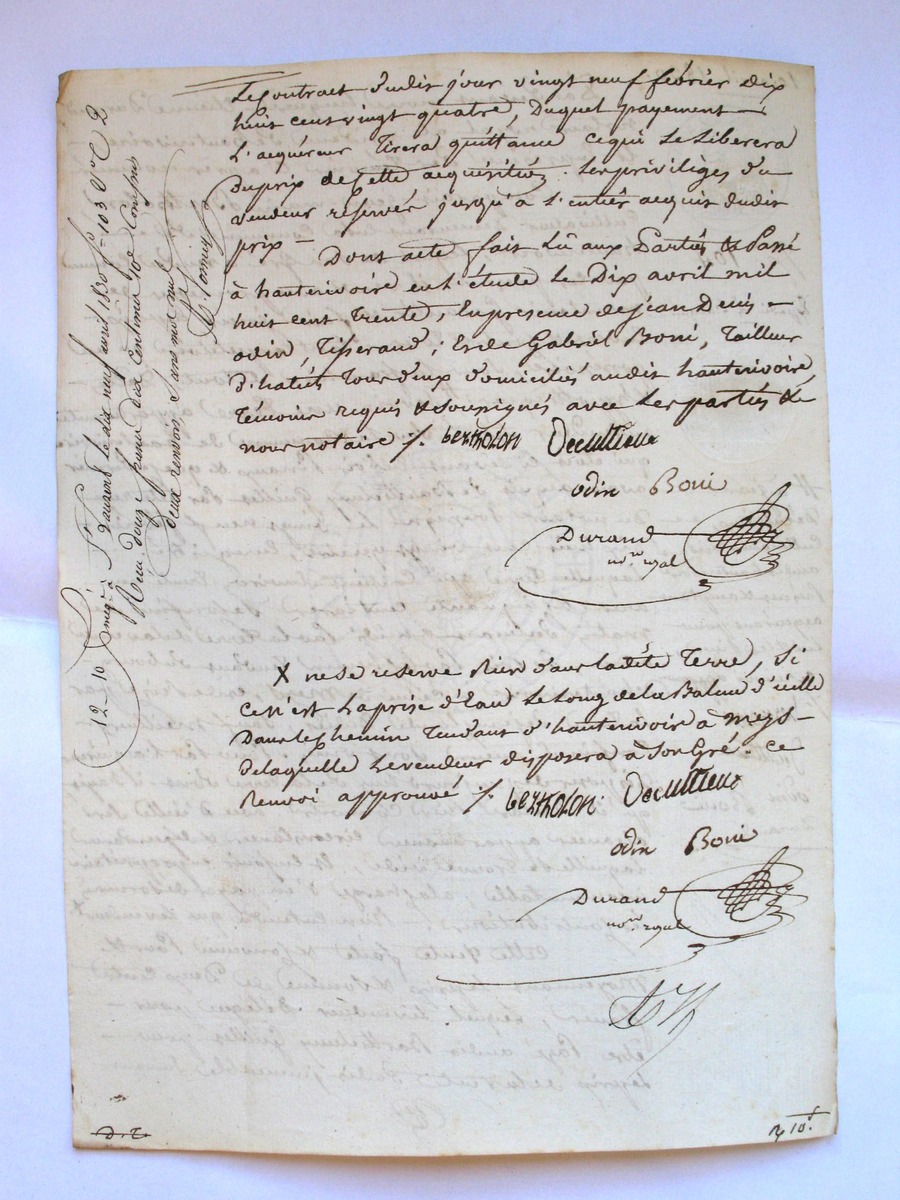 Le Contrat dudit jour vingt neuf février dix
huit cent vingt quatre, Duquel payement
L'acquéreur Tirera quittance ce qui Le Liberera
Du prix de Cette acquisition. Les privilèges du
vendeur réservés jusqu'à L'entier acquit dudit
prix — Dont acte fait Lû aux Parties & Passé
à hauterivoire en L'étude Le Dix avril mil
huit cent Trente, En présence de jean Denis
odin, Tisserand; Et de Gabriel Boni, Tailleur
D'habits Tous deux domiciliés audit hauterivoire,
Témoins requis & Soussignés avec Les parties &
nous notaire ⁒. bertholon Decultieux
odin Boni
Durand
nore royal
X ne se réserve Rien dans Ladite Terre, Si
Ce N'est La prise d'Eau Le Long de La
Dans Le Chemin Tendant d'hauterivoir à Meys
De laquelle Le vendeur disposera à Son Gré. Ce
Renvoi approuvé ⁒. bertholon Decultieux
odin Boni
Durand
nore royal
D. T.
R 10
12–10 Enregé à St Laurent le dix neuf avril 1830 fo 103 Vo C 2
Reçu douze francs dix Centimes 10e Compris
deux renvois, Sans mot nul